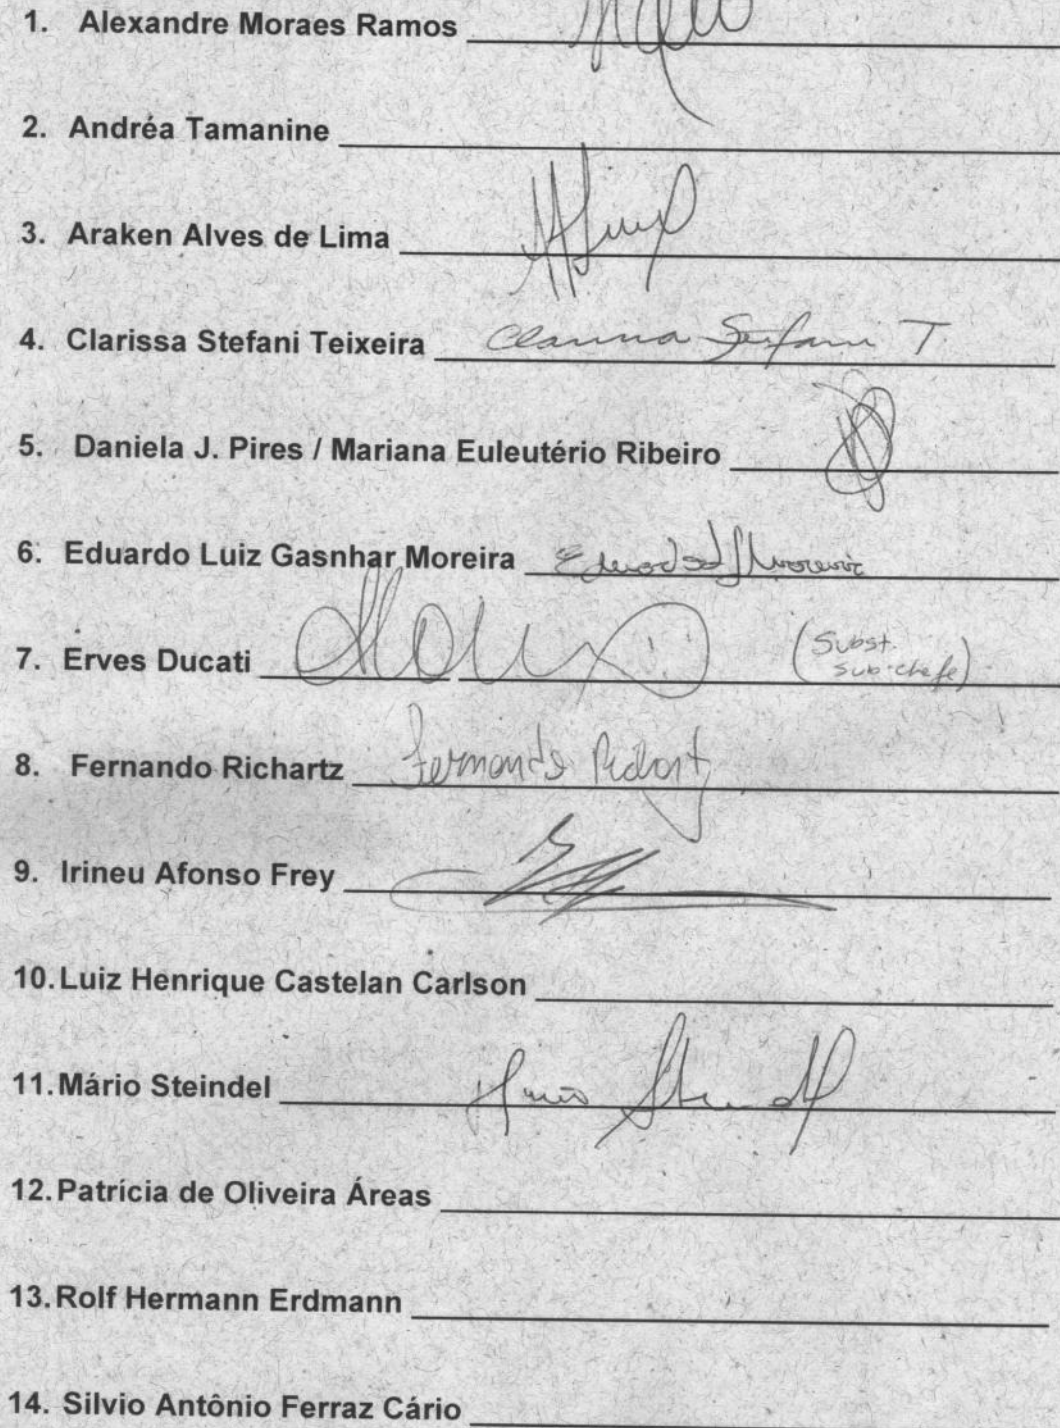 1. Alexandre Moraes Ramos
2. Andréa Tamanine
3. Araken Alves de Lima
4. Clarissa Stefani Teixeira Clarissa Stefani T.
5. Daniela J. Pires / Mariana Euleutério Ribeiro
6. Eduardo Luiz Gasnhar Moreira Eduardo Moreira
7. Erves Ducati (Subst.
sub-chefe)
8. Fernando Richartz Fernando Richartz
9. Irineu Afonso Frey
10. Luiz Henrique Castelan Carlson
11. Mário Steindel Mário Steindel
12. Patrícia de Oliveira Áreas
13. Rolf Hermann Erdmann
14. Silvio Antônio Ferraz Cário